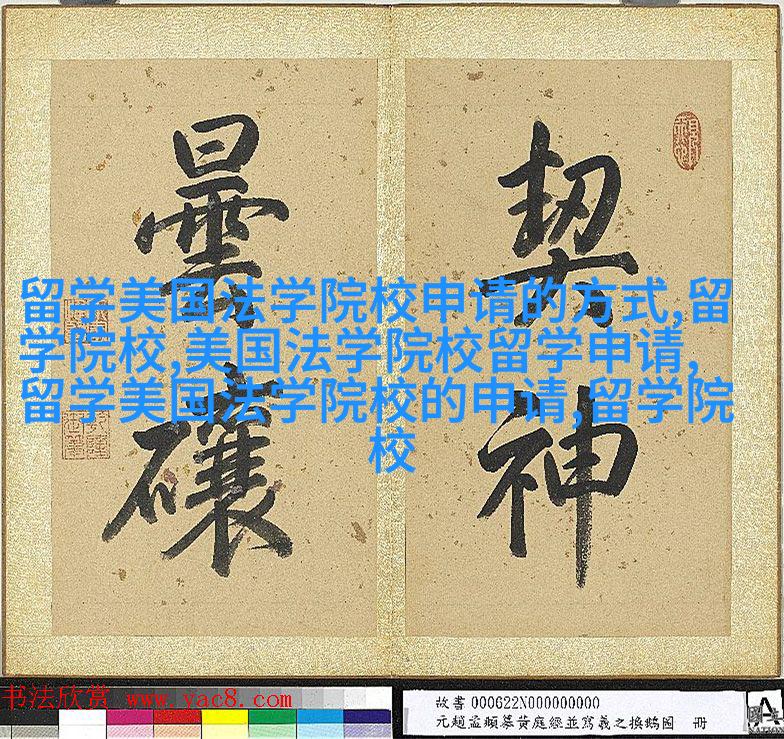 契神
曇礲
留学美国法学院校申请的方式,留
学院校,美国法学院校留学申请,
留学美国法学院校的申请,留学院
校
书法欣赏 www.yac8.com
故書000622N000000000
元趙孟頫墓黄庭經並寫羲之換鵝圖 冊